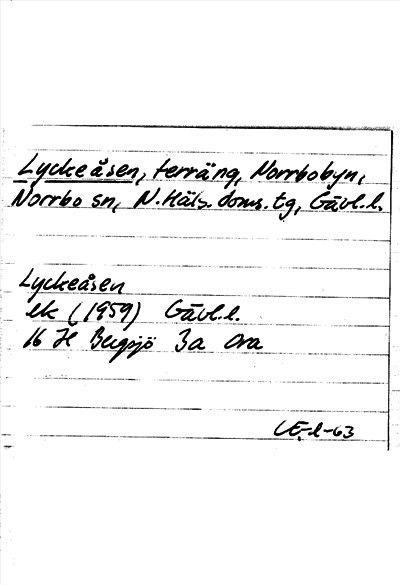 Lyckeåsen, terräng, Norrbobyn,
Norrbo sn, N. Häls. doms. tg, Gävl. l.
Lyckeåsen
ek (1959) Gävl. l.
16 H Bergsjö 3a ova